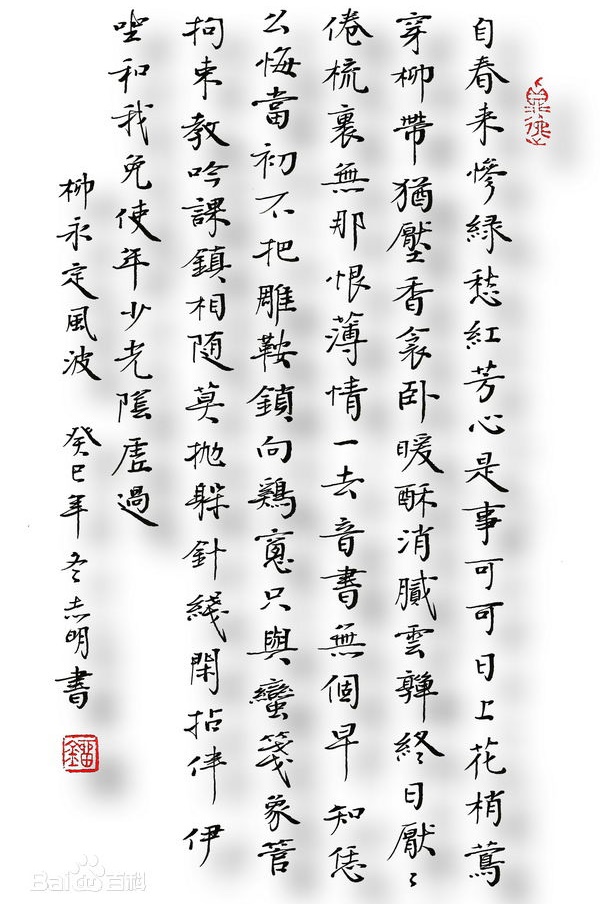 自春来慘緑愁紅芳心是事可可日上花梢鶯
穿柳帶猶壓香衾卧暖酥消膩雲嚲終日厭〻
倦梳裹無那恨薄情一去音書無個早知恁
么悔當初不把雕鞍鎖向鷄窻只與蠻箋象管
拘束教吟課鎮相随莫抛躲針綫閑拈伴伊
坐和我免使年少光陰虛過
柳永定風波 癸巳年冬志明書
Bai 百科